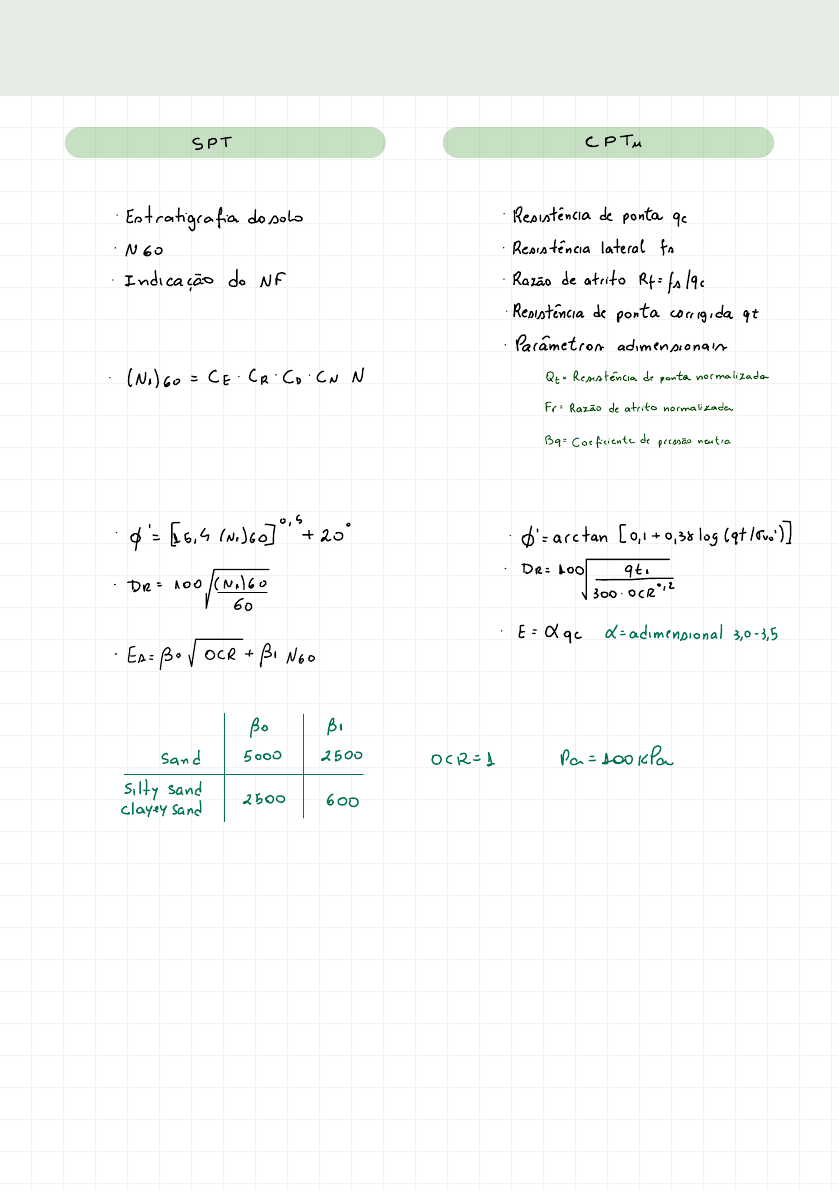 SPT
· Estratigrafia do solo
· N60
· Indicação do NF
· (N₁)60 = CE · CR · CD · CN N
· ϕ' = [15,4 (N₁)60]^0,5 + 20°
· DR = 100 √((N₁)60 / 60)
· Es = β0 √OCR + β1 N60
β0 β1
Sand 5000 2500
Silty sand
clayey sand 2500 600
CPTu
· Resistência de ponta qc
· Resistência lateral fs
· Razão de atrito Rf = fs/qc
· Resistência de ponta corrigida qt
· Parâmetros adimensionais
Qt = Resistência de ponta normalizada
Fr = Razão de atrito normalizada
Bq = Coeficiente de pressão neutra
· ϕ' = arctan [0,1 + 0,38 log (qt/σvo')]
· DR = 100 √(qt₁ / 300 · OCR^0,2)
· E = α qc α = adimensional 3,0-3,5
OCR = 1 Pa = 100 kPa